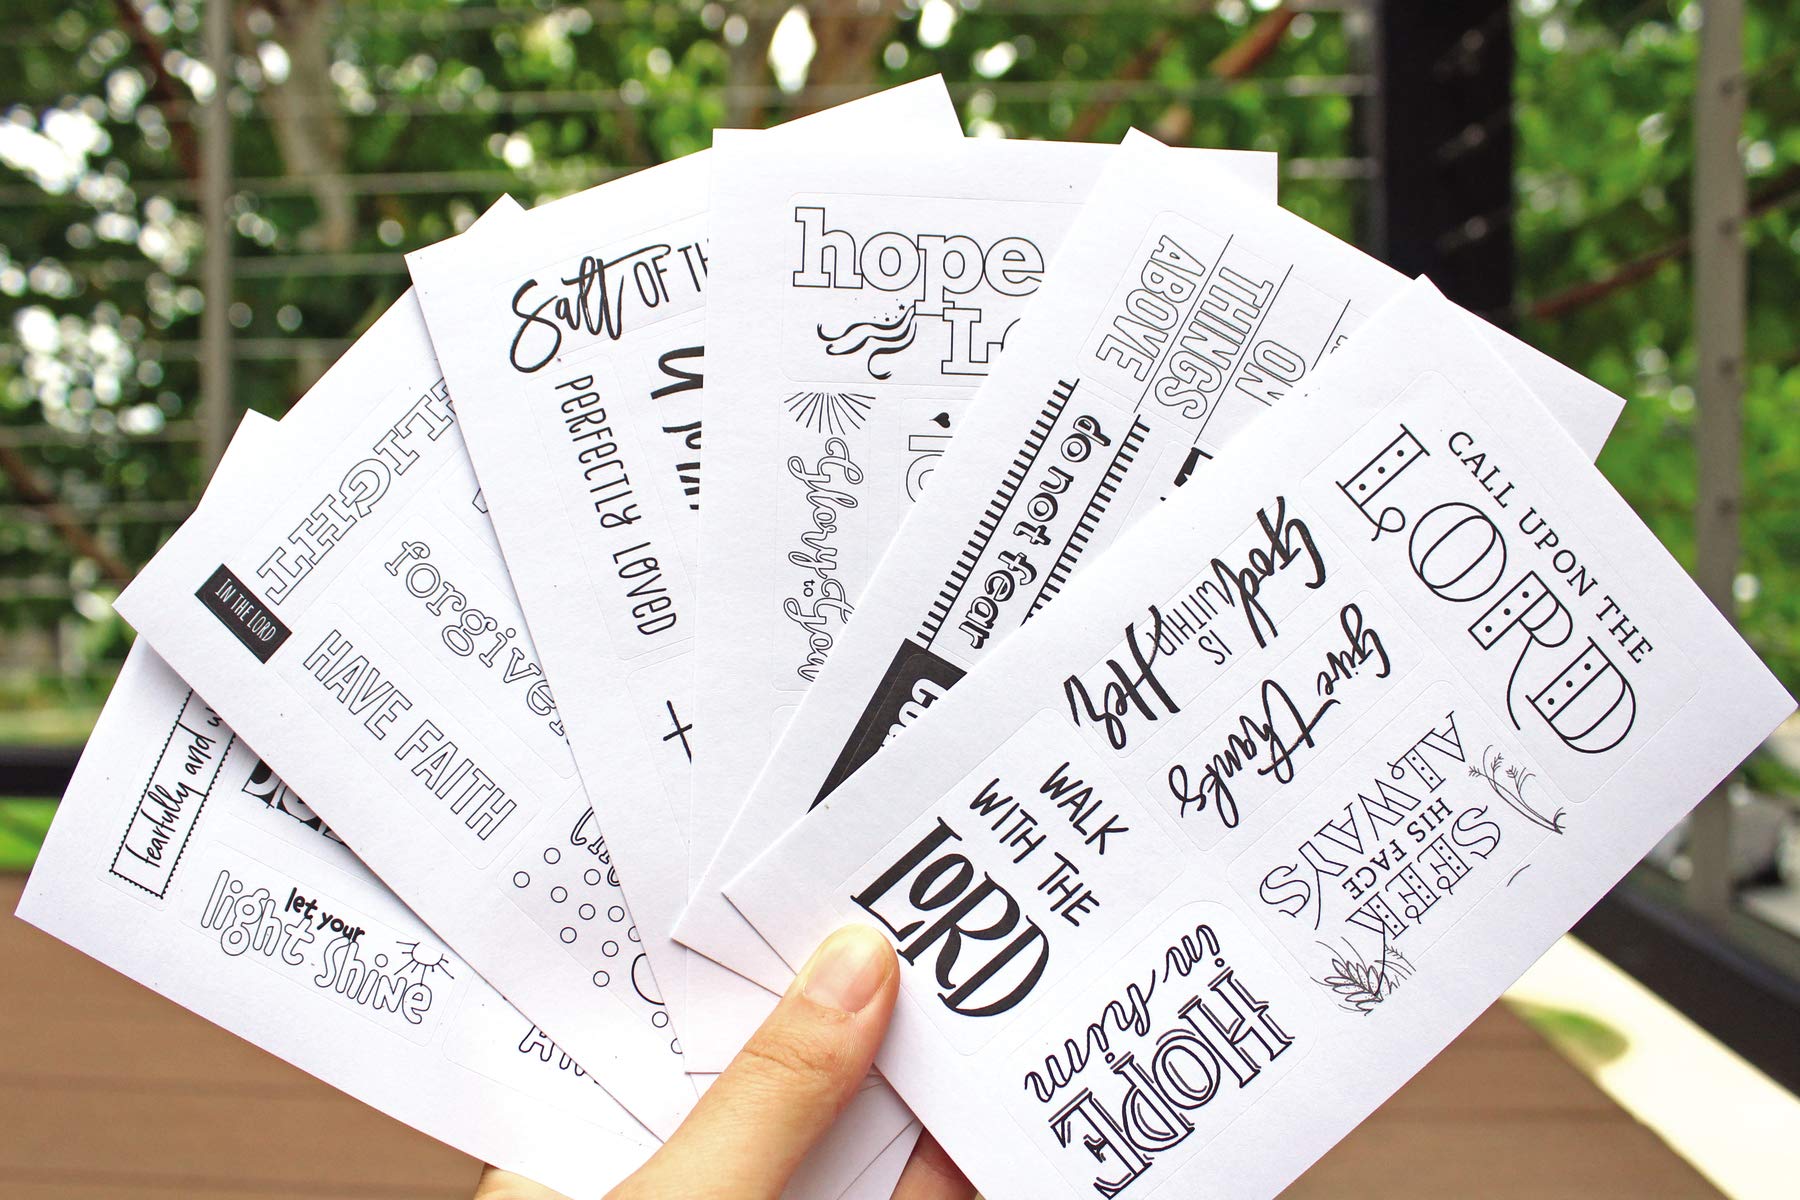 fearfully and
let your
light shine
LIGHT
IN THE LORD
forgiven
HAVE FAITH
Salt OF
PERFECTLY LOVED
hope
Glory
to
you
ON
THINGS
ABOVE
do not fear
CALL UPON THE
LORD
God
IS
WITHIN
Her
give
thanks
SEEK
HIS FACE
ALWAYS
WALK
WITH THE
LORD
HOPE
in him